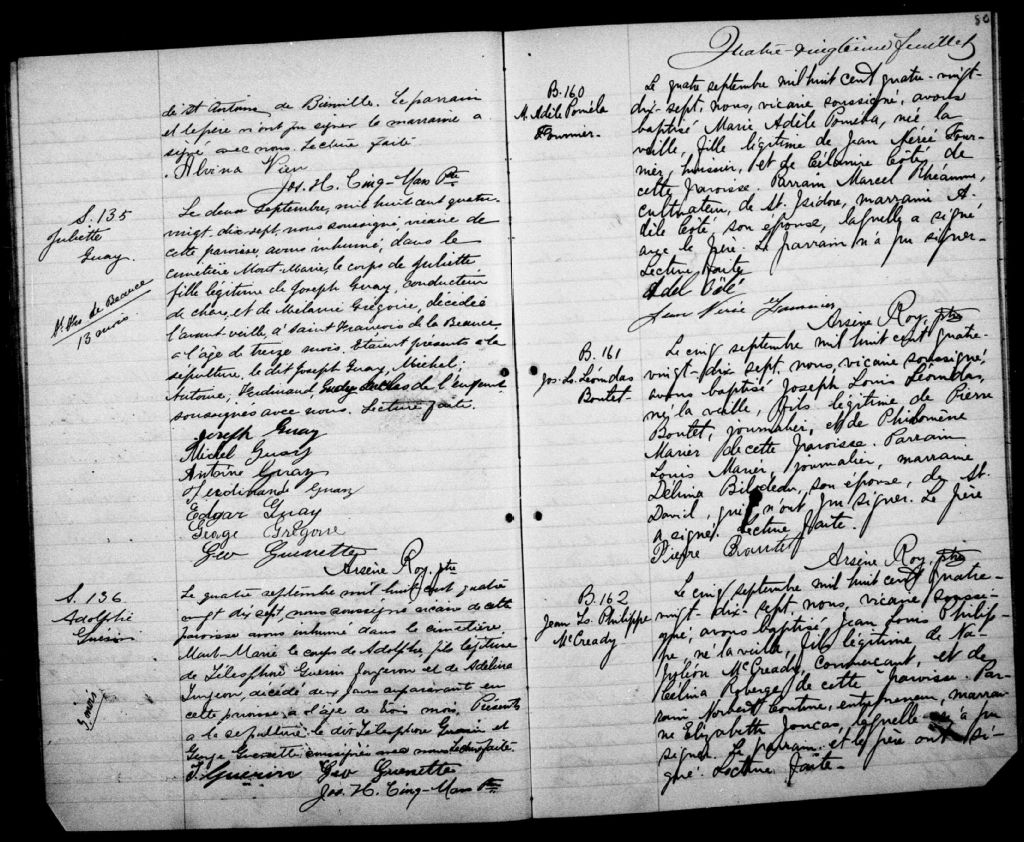 de St Antoine de Bienville. Le parrain
et le père n'ont pu signer la marraine a
signé avec nous. Lecture faite
Alvina Vien
Jos. H. Cinq-Mars Ptre
S. 135
Juliette
Guay.
St Frs de Beauce
13 mois
Le deux septembre, mil huit cent quatre-
vingt-dix-sept, nous soussigné, vicaire de
cette paroisse, avons inhumé, dans le
cimetière Mont-Marie, le corps de Juliette
fille légitime de Joseph Guay, conducteur
de chars, et de Mélanie Grégoire, décédée
l'avant-veille, à Saint François de la Beauce
à l'âge de treize mois. Etaient présents à la
sépulture, le dit Joseph Guay, Michel,
Antoine, Ferdinand, Guay de l'enfant
soussignés avec nous. Lecture faite.
Joseph Guay
Michel Guay
Antoine Guay
Ferdinand Guay
Edgar Guay
George Grégoire
Geo Guenette
Arsène Roy, ptre
S. 136
Adolphe
Guérin
Le quatre septembre mil huit cent quatre
vingt dix sept, nous soussigné vicaire de cette
paroisse avons inhumé dans le cimetière
Mont-Marie le corps de Adolphe, fils légitime
de Télesphore Guérin forgeron et de Adelina
décédé deux jours auparavant en
cette paroisse à l'âge de trois mois. Présents
à la sépulture le dit Télesphore Guérin et
George Guenette soussignés avec nous Lecture faite.
T. Guerin Geo Guenette
Jos. H. Cinq-Mars Ptre
80
Quatre-vingtième feuillet
B. 160
M. Adèle Poméla
Fournier-
Le quatre septembre mil huit cent quatre-vingt-
dix-sept, nous, vicaire soussigné, avons
baptisé Marie Adèle Poméla, née la
veille, fille légitime de Jean Nérée Four-
nier, huissier, et de Célanire Côté, de
cette paroisse. Parrain Marcel Rhéaume,
cultivateur, de St. Isidore, marraine A-
dèle Côté, son épouse, laquelle a signé
avec le père. Le parrain n'a pu signer-
Lecture faite
Adel Côté
Jean Nérée Fournier
Arsène Roy, ptre
B. 161
Jos. Ls. Léonidas
Boutet-
Le cinq septembre mil huit cent quatre-
vingt-dix sept, nous, vicaire soussigné
avons baptisé Joseph Louis Léonidas,
né la veille, fils légitime de Pierre
Boutet, journalier, et de Philomène
Marier de cette paroisse. Parrain
Louis Marier, journalier, marraine
Délina Bilodeau, son épouse, de St.
David, qui n'ont pu signer. Le père
a signé. Lecture faite.
Pierre Boutet
Arsène Roy, ptre
B. 162
Jean Ls. Philippe
McCready
Le cinq septembre mil huit cent quatre-
vingt-dix-sept, nous, vicaire soussi-
gné, avons baptisé Jean Louis Philip-
pe, né la veille, fils légitime de Na-
poléon McCready, commerçant, et de
Célina Roberge de cette paroisse. Par-
rain Norbert Couture, entrepreneur, marrai-
ne Elizabeth Joncas, laquelle n'a pu
signer. Le parrain et le père ont si-
gné. Lecture faite-